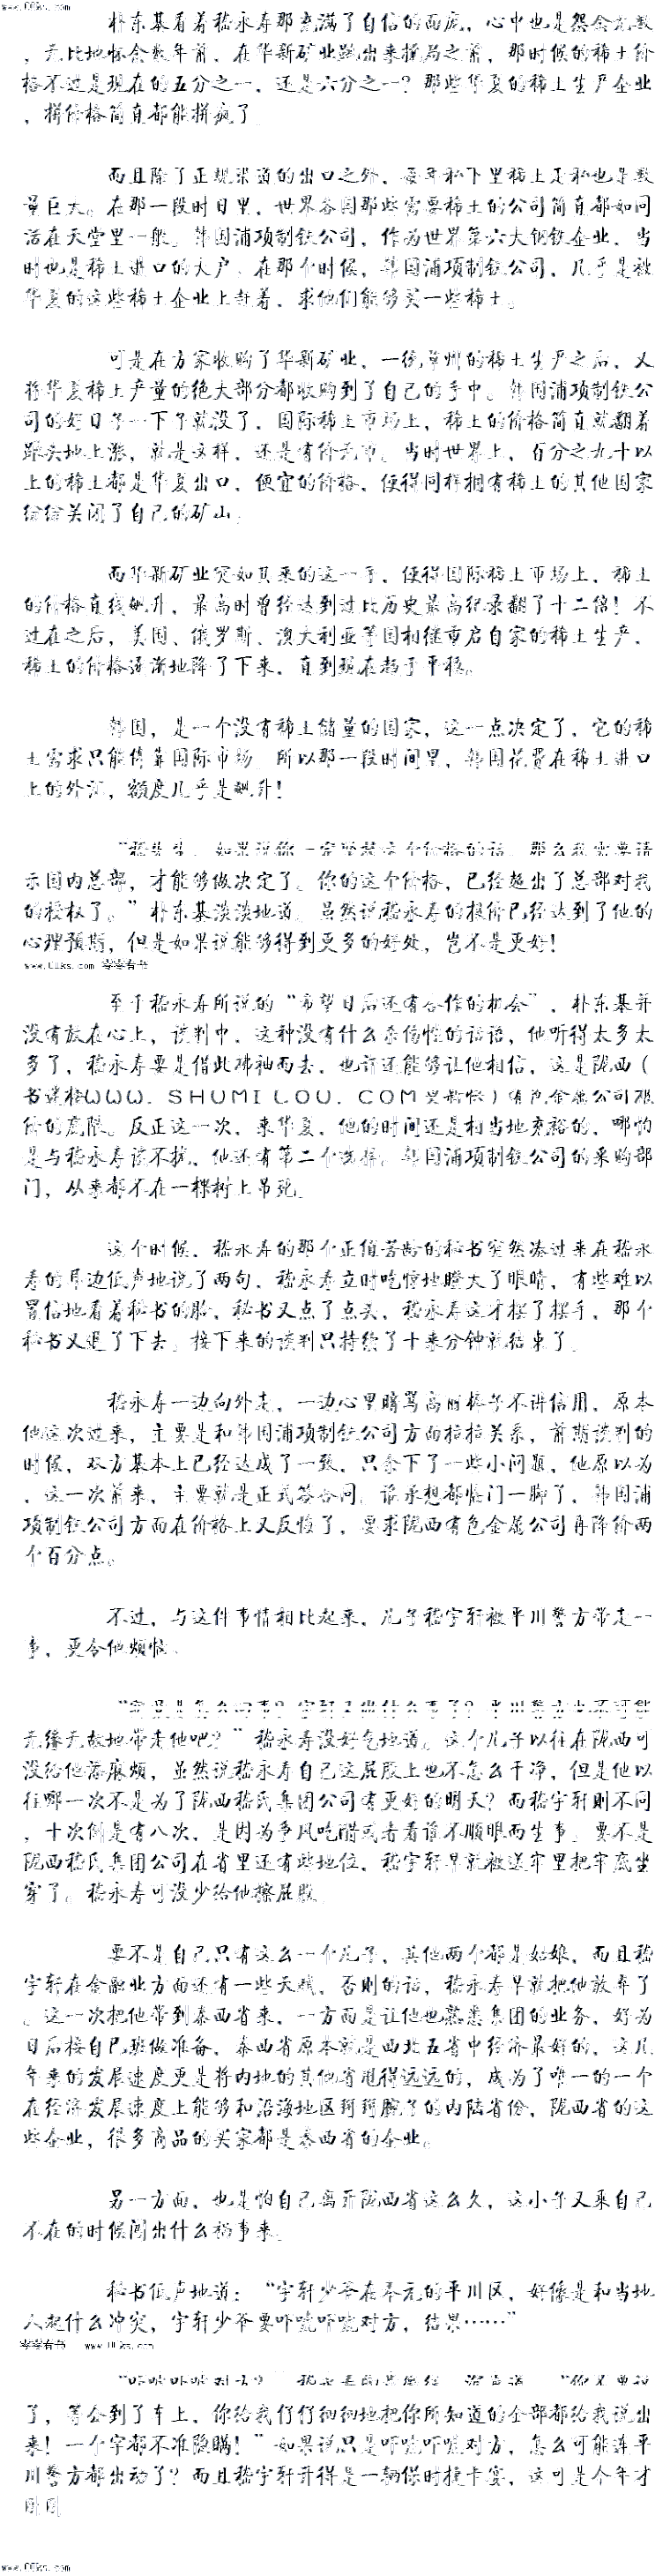 www.00ks.com
朴东基看着嵇永寿那充满了自信的面庞，心中也是怨念无数
，无比地怀念数年前，在华新矿业跳出来搅局之前，那时候的稀土价
格不过是现在的五分之一，还是六分之一？那些华夏的稀土生产企业
，拼价格简直都能拼疯了。
而且除了正规渠道的出口之外，每年私下里稀土走私也是数
量巨大。在那一段时日里，世界各国那些需要稀土的公司简直都如同
活在天堂里一般。韩国浦项制铁公司，作为世界第六大钢铁企业，当
时也是稀土进口的大户，在那个时候，韩国浦项制铁公司，几乎是被
华夏的这些稀土企业上赶着，求他们能够买一些稀土。
可是在方家收购了华新矿业，一统草州的稀土生产之后，又
将华夏稀土产量的绝大部分都收购到了自己的手中。韩国浦项制铁公
司的好日子一下子就没了，国际稀土市场上，稀土的价格简直就翻着
跟头地上涨，就是这样，还是有价无市。当时世界上，百分之九十以
上的稀土都是华夏出口，便宜的价格，使得同样拥有稀土的其他国家
纷纷关闭了自己的矿山。
而华新矿业突如其来的这一手，使得国际稀土市场上，稀土
的价格直线飙升，最高时曾经达到过比历史最高纪录翻了十二倍！不
过在之后，美国、俄罗斯、澳大利亚等国相继重启自家的稀土生产，
稀土的价格逐渐地降了下来，直到现在趋于平稳。
韩国，是一个没有稀土储量的国家，这一点决定了，它的稀
土需求只能倚靠国际市场。所以那一段时间里，韩国花费在稀土进口
上的外汇，额度几乎是飙升！
“嵇先生，如果说你一定坚持这个价格的话，那么我需要请
示国内总部，才能够做决定了。你的这个价格，已经超出了总部对我
的授权了。”朴东基淡淡地道。虽然说嵇永寿的报价已经达到了他的
心理预期，但是如果说能够得到更多的好处，岂不是更好！
www.00ks.com 零零看书
至于嵇永寿所说的“希望日后还有合作的机会”，朴东基并
没有放在心上，谈判中，这种没有什么杀伤性的话语，他听得太多太
多了，嵇永寿要是借此拂袖而去，也许还能够让他相信，这是陇西（
书迷楼WWW.SHUMILOU.COM更新快）有色金属公司报
价的底限。反正这一次，来华夏，他的时间还是相当地充裕的，哪怕
是与嵇永寿谈不拢，他还有第二个选择。韩国浦项制铁公司的采购部
门，从来都不在一棵树上吊死。
这个时候，嵇永寿的那个正值芳龄的秘书突然凑过来在嵇永
寿的耳边低声地说了两句，嵇永寿立时吃惊地瞪大了眼睛，有些难以
置信地看着秘书的脸，秘书又点了点头，嵇永寿这才摆了摆手，那个
秘书又退了下去。接下来的谈判只持续了十来分钟就结束了。
嵇永寿一边向外走，一边心里暗骂高丽棒子不讲信用，原本
他这次过来，主要是和韩国浦项制铁公司方面拉拉关系，前期谈判的
时候，双方基本上已经达成了一致，只余下了一些小问题，他原以为
，这一次前来，主要就是正式签合同。谁承想都临门一脚了，韩国浦
项制铁公司方面在价格上又反悔了，要求陇西有色金属公司再降价两
个百分点。
不过，与这件事情相比起来，儿子嵇宇轩被平川警方带走一
事，更令他烦恼。
无缘无故地带走他吧？”嵇永寿没好气地道。这个儿子以往在陇西可
没给他惹麻烦，虽然说嵇永寿自己这屁股上也不怎么干净，但是他以
往哪一次不是为了陇西嵇氏集团公司有更好的明天？而嵇宇轩则不同
，十次倒是有八次，是因为争风吃醋或者看谁不顺眼而生事。要不是
陇西嵇氏集团公司在省里还有些地位，嵇宇轩早就被送牢里把牢底坐
穿了。嵇永寿可没少给他擦屁股。
要不是自己只有这么一个儿子，其他两个都是姑娘，而且嵇
宇轩在金融业方面还有一些天赋，否则的话，嵇永寿早就把他放弃了
。这一次把他带到秦西省来，一方面是让他也熟悉集团的业务，好为
日后接自己班做准备，秦西省原本就是西北五省中经济最好的，这几
年来的发展速度更是将内地的其他省甩得远远的，成为了唯一的一个
在经济发展速度上能够和沿海地区掰掰腕子的内陆省份，陇西省的这
些企业，很多商品的买家都是秦西省的企业。
另一方面，也是怕自己离开陇西省这么久，这小子又乘自己
不在的时候闯出什么祸事来。
秘书低声地道：“宇轩少爷在奉元的平川区，好像是和当地
人起什么冲突，宇轩少爷要吓唬吓唬对方，结果……”
零零看书 www.00ks.com
了，等会到了车上，你给我仔仔细细地把你所知道的全部都给我说出
来！一个字都不准隐瞒！”如果说只是吓唬吓唬对方，怎么可能连平
川警方都出动了？而且嵇宇轩开得是一辆保时捷卡宴，这可是个年才
刚刚
www.00ks.com